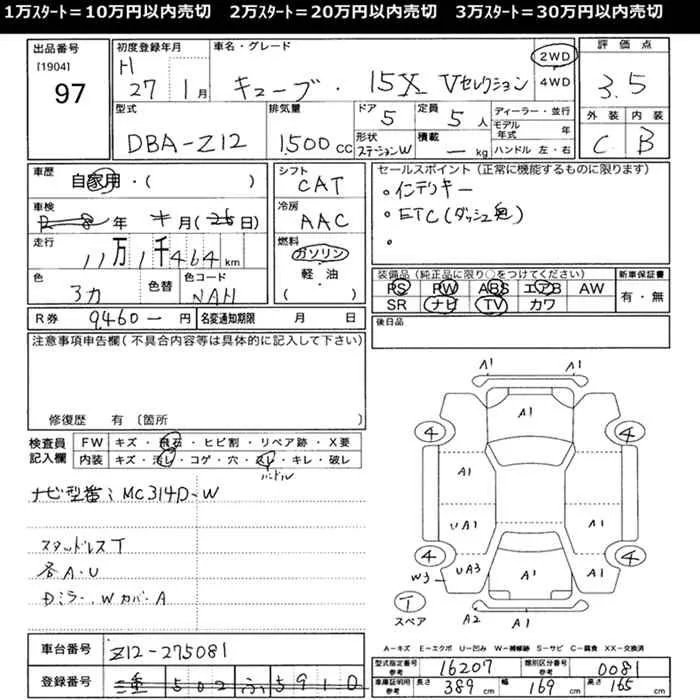 1万ｽﾀｰﾄ＝10万円以内売切　2万ｽﾀｰﾄ＝20万円以内売切　3万ｽﾀｰﾄ＝30万円以内売切
出品番号
[1904]
97
初度登録年月
H 27年 1月
車名・グレード
キューブ・15X Vセレクション
2WD
4WD
評価点
3.5
型式
DBA-Z12
排気量
1,500 CC
ドア
5
形状
ステーションW
定員
5人
積載
― kg
ディーラー・並行
モデル年式　年
ハンドル 左・右
外装 内装
C B
車歴
自家用・(　　)
車検
年 月( 日)
走行
11万1千464km
色
色替
色コード
NAH
シフト
CAT
冷房
AAC
燃料
ガソリン
軽・油
(　　)
セールスポイント(正常に機能するものに限ります)
○インテリキー
○ETC(ダッシュ)
○
装備品(純正品に限り○をつけてください)
PS PW ABS エアB AW
SR ナビ TV カワ
新車保証書
有・無
R券 9,460― 円
名変通知期限　月　日
後日品
注意事項申告欄(不具合内容等は具体的に記入して下さい)
修復歴　有〔箇所
検査員記入欄
FW キズ・飛石・ヒビ割・リペア跡・X要
内装 キズ・汚レ・コゲ・穴・スレ・キレ・破レ
ハンドル
ナビ型番：MC314D-W
スタッドレスT
各A・U
Dミラー、Wカバー A
A1
A1
A1
4
4
A1
A1
UA1
A1
4
4
W3
UA3
A1
A1
T
スペア
A2
A1
A―キズ　E―エクボ　U―凹み　W―補修跡　S―サビ　C―腐食　XX―交換済
車台番号 Z12-275081
登録番号 三重 502 ふ 5910
型式指定番号 参考 16207
類別区分番号 参考 0081
車庫証明用 参考 長さ 389cm 幅 169cm 高さ 165cm